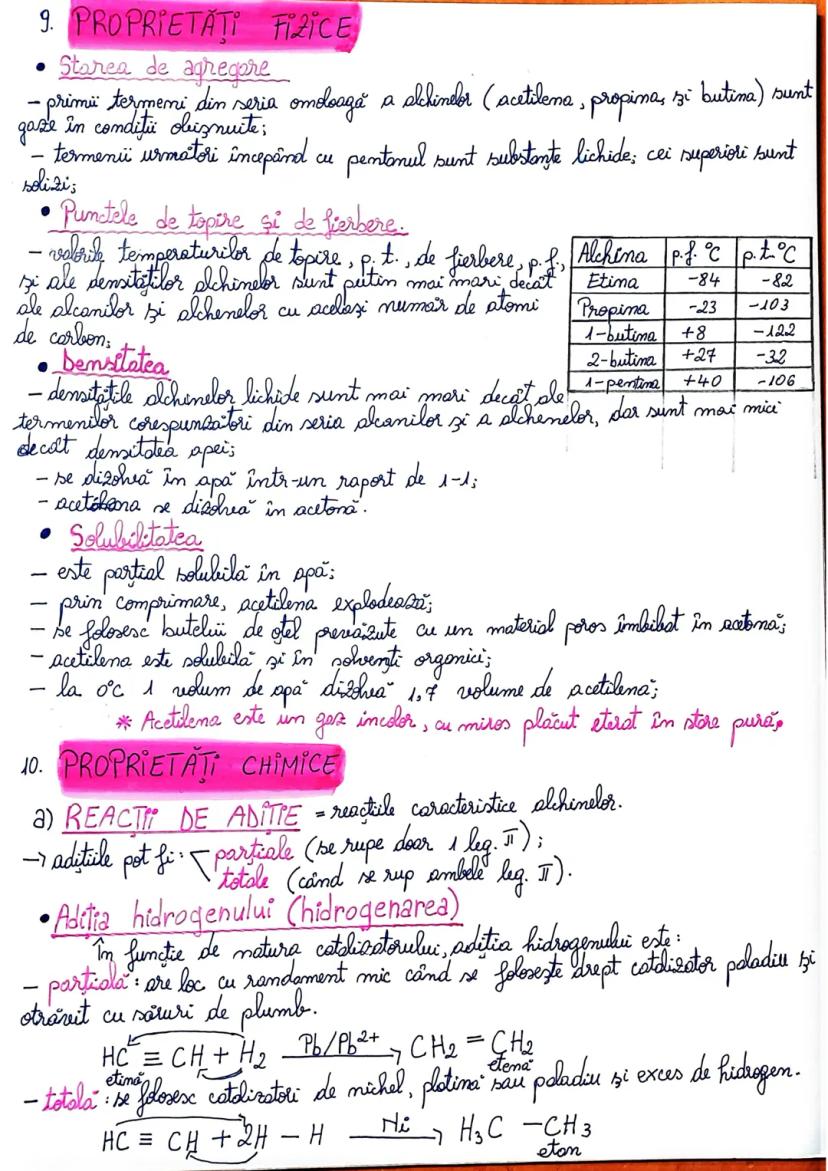 9. PROPRIETĂȚI FIZICE
• Starea de agregare
- primii termeni din seria omoloagă a alchinelor (acetilena, propina, și butina) sunt
gaze în condiții obișnuite;
- termenii următori începând cu pentanul sunt substanțe lichide; cei superiori sunt
solizi;
• Punctele de topire și de fierbere.
- valorile temperaturilor de topire, p. t., de fierbere, p. f.,
și ale densităților alchinelor sunt puțin mai mari decât
ale alcanilor și alchenelor cu același număr de atomi
de carbon;
Alchina p.f. °C p.t. °C
Etina -84 -82
Propina -23 -103
1-butina +8 -122
2-butina +27 -32
1-pentina +40 -106
• Densitatea
- densitățile alchinelor lichide sunt mai mari decât ale
termenilor corespunzători din seria alcanilor și a alchenelor, dar sunt mai mici
decât densitatea apei;
- se dizolvă în apă într-un raport de 1-1;
- acetilena se dizolvă în acetonă.
• Solubilitatea
- este parțial solubilă în apă;
- prin comprimare, acetilena explodează;
- se folosesc butelii de oțel prevăzute cu un material poros îmbibat în acetonă;
- acetilena este solubilă și în solvenți organici;
- la 0°c 1 volum de apă dizolvă 1,7 volume de acetilenă;
* Acetilena este un gaz incolor, cu miros plăcut eterat în stare pură.
10. PROPRIETĂȚI CHIMICE
a) REACȚII DE ADIȚIE = reacțiile caracteristice alchinelor.
→ adițiile pot fi: parțiale (se rupe doar 1 leg. π);
totale (când se rup ambele leg. π).
• Adiția hidrogenului (hidrogenarea)
În funcție de natura catalizatorului, adiția hidrogenului este:
- parțială: are loc cu randament mic când se folosește drept catalizator paladiu și
otrăvit cu săruri de plumb.
HC ≡ CH + H2 Pb/Pb2+ → CH2 = CH2
etină etenă
- totală: se folosesc catalizatori de nichel, platină sau paladiu și exces de hidrogen.
HC ≡ CH + 2H - H Ni → H3C - CH3
etan